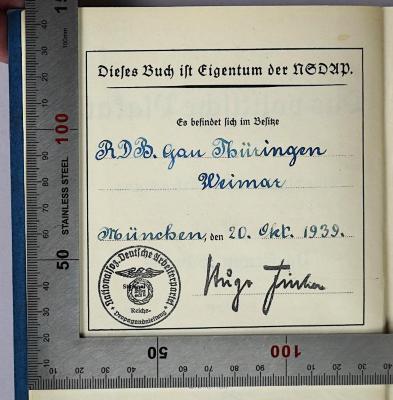 Dieses Buch ist Eigentum der NSDAP.
Es befindet sich im Besitze
RDB. Gau Thüringen
Weimar
München, den 20. Okt. 1939.
Nationalsoz. Deutsche Arbeiterpartei
Reichs-
Propagandaleitung
Hugo Fischer
STAINLESS STEEL
150mm
100
50
50
100
10 20 30 40 60 70 80 90 10 20 30 40